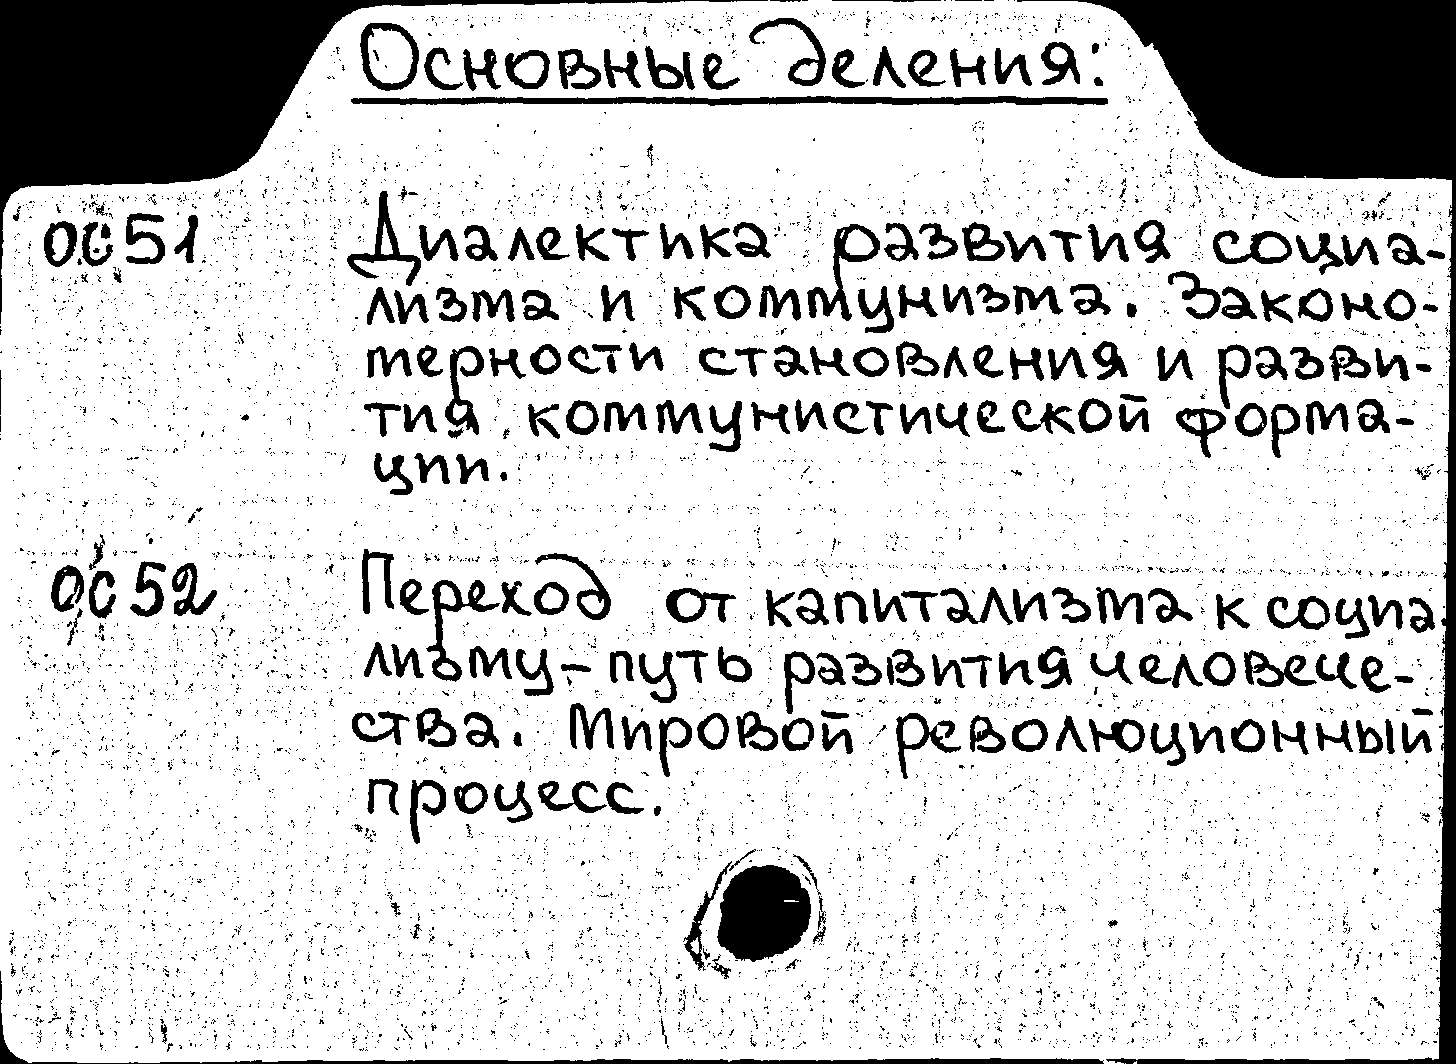 Основные деления:
0с51 Диалектика развития социа-
лизма и коммунизма. Законо-
мерности становления и разви-
тия коммунистической форма-
ции.
0с52 Переход от капитализма к социа-
лизму – путь развития человече-
ства. Мировой революционный
процесс.